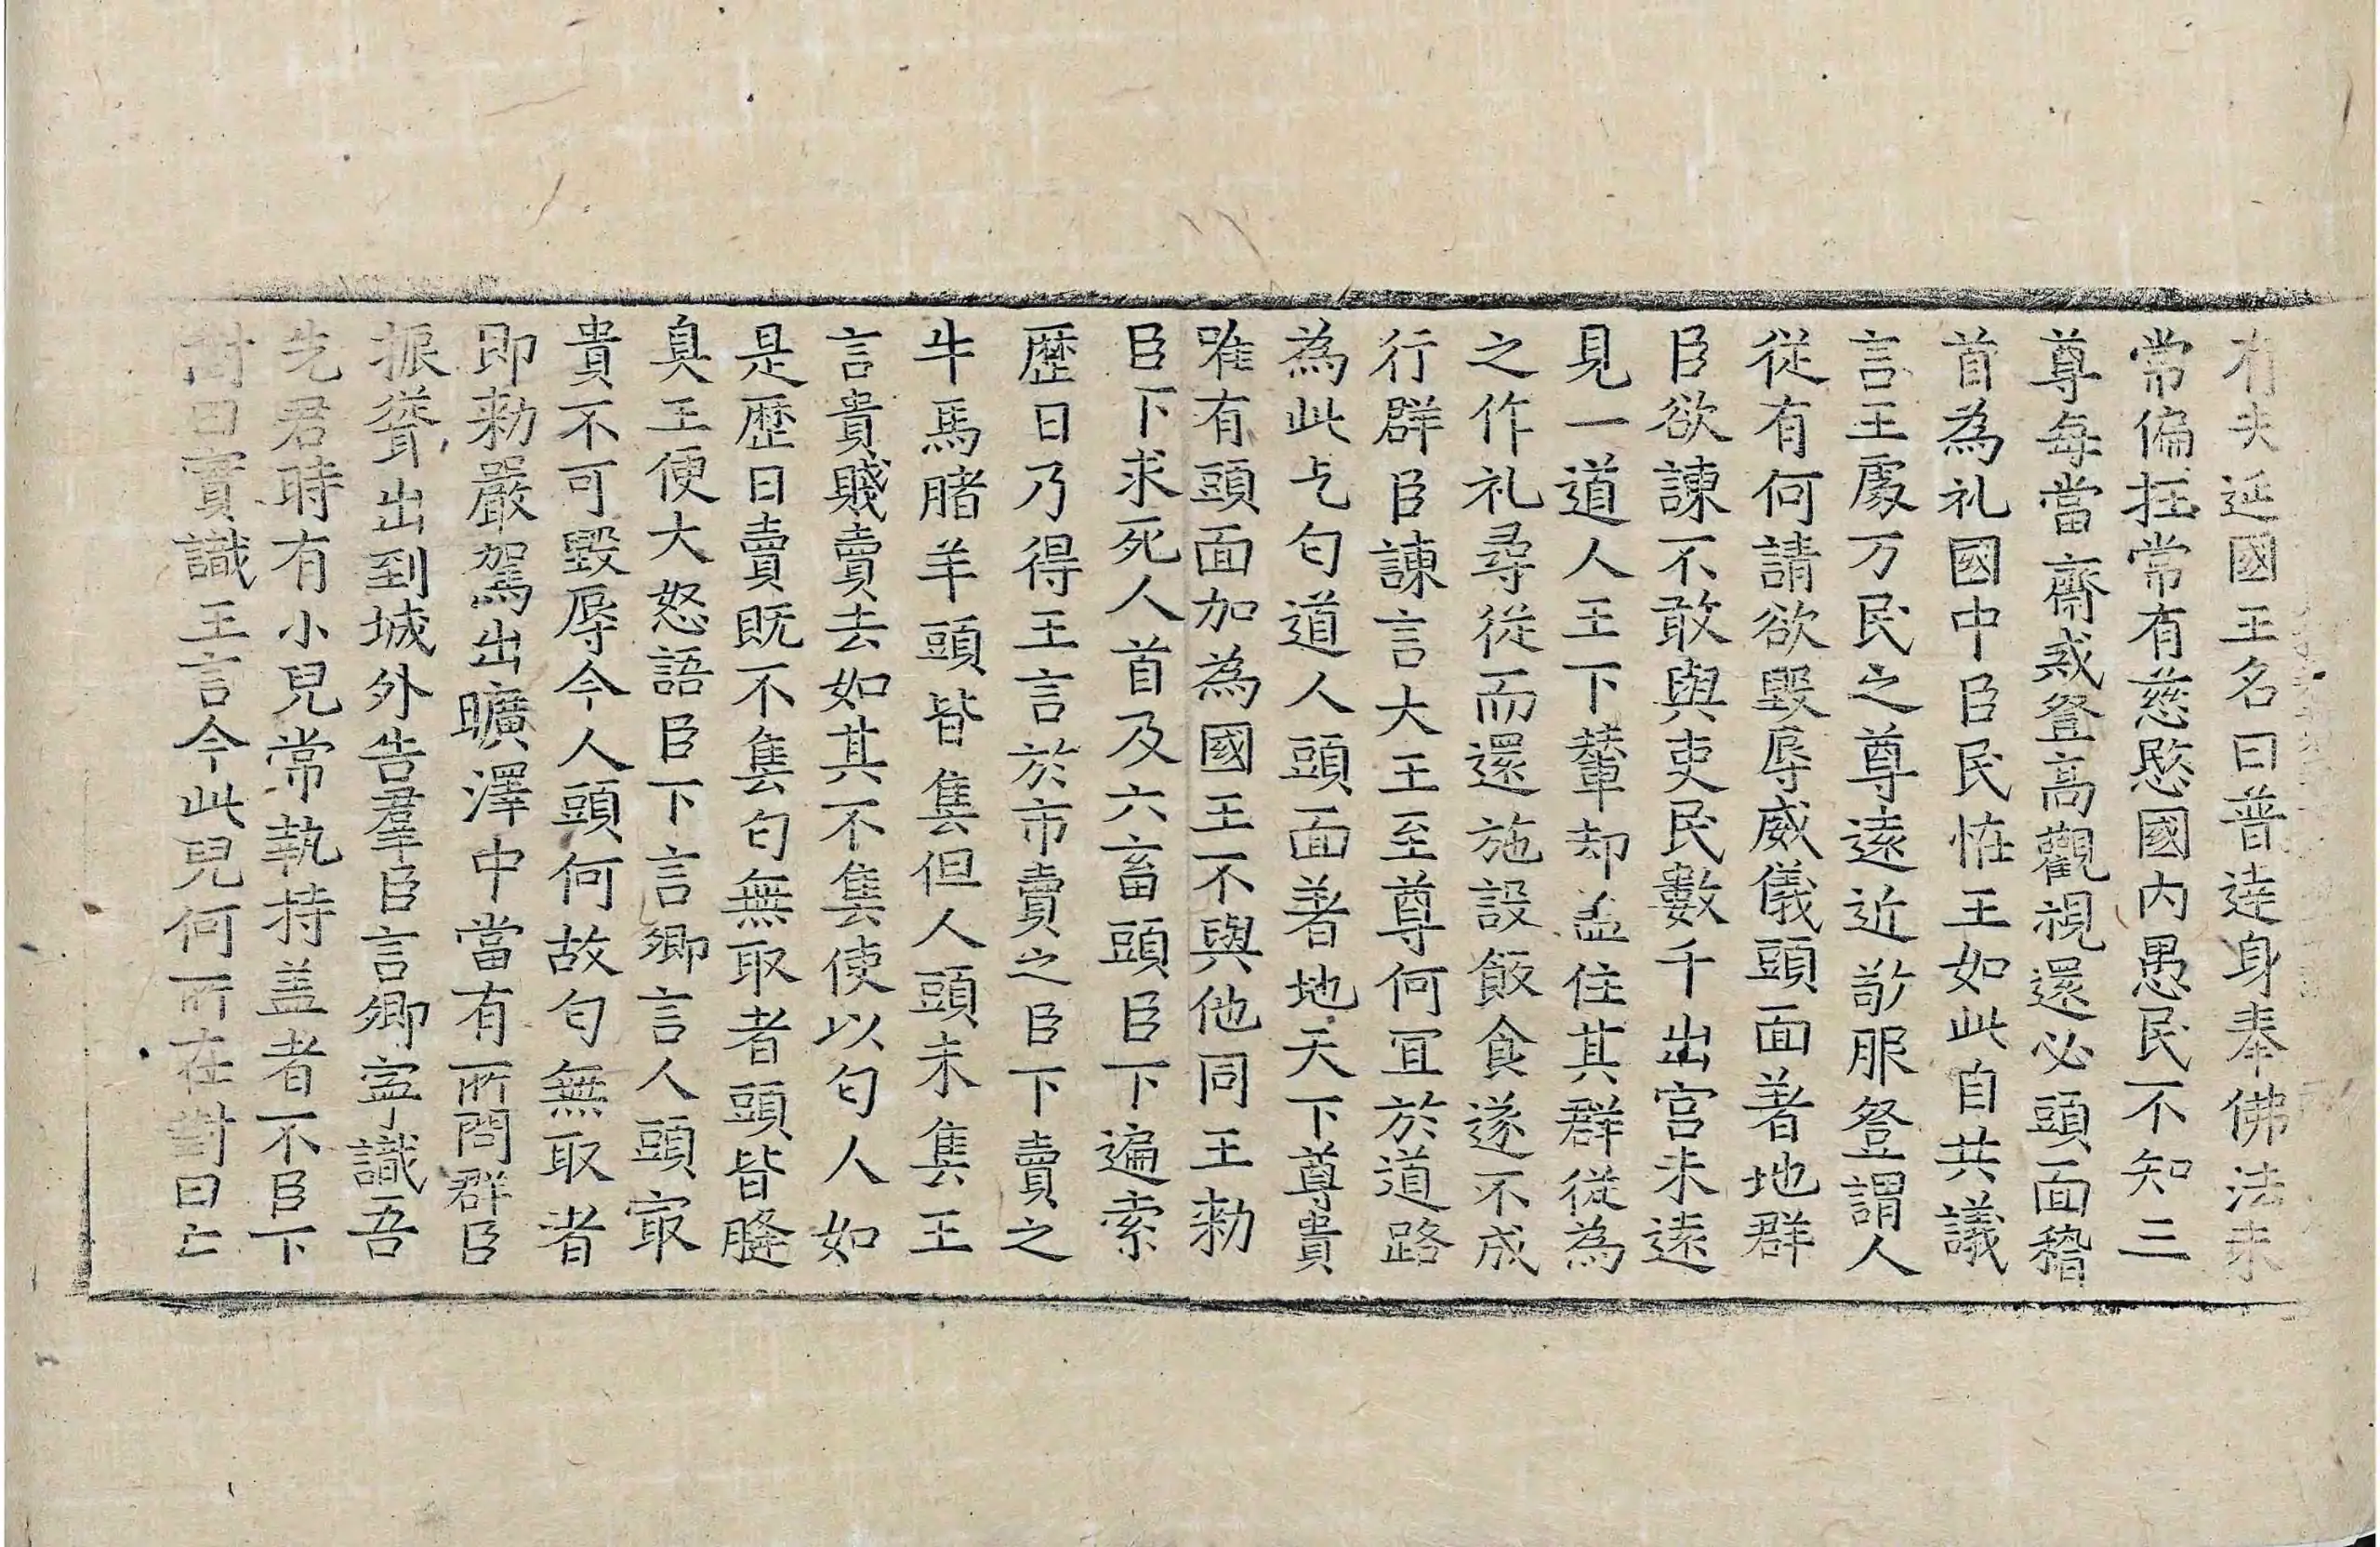 有夫延國王名曰普達身奉佛法未
常偏抂常有慈愍國内愚民不知三
尊每當齋戒登高觀視還必頭面稽
首為礼國中臣民恠王如此自共議
言王處万民之尊遠近敬服發謂人
從有何請欲毀辱威儀頭面著地群
臣欲諫不敢與吏民數千出宮未遠
見一道人王下輦却盖住其群従為
之作礼尋從而還施設飯食遂不成
行群臣諫言大王至尊何冝於道路
為此乞匃道人頭面著地天下尊貴
唯有頭面加為國王不與他同王勑
臣下求死人首及六畜頭臣下遍索
歷日乃得王言於市賣之臣下賣之
牛馬賭羊頭皆售但人頭未售王
言貴賤賣去如其不售使以匃人如
是歷日賣既不售匃無取者頭皆膖
臭王便大怒語臣下言卿言人頭㝡
貴不可毀辱今人頭何故匃無取者
即勑嚴駕出曠澤中當有所問群臣
振聳出到城外告羣臣言卿寧識吾
先君時有小兒常執持盖者不臣下
對曰實識王言今此兒何所在對曰亡